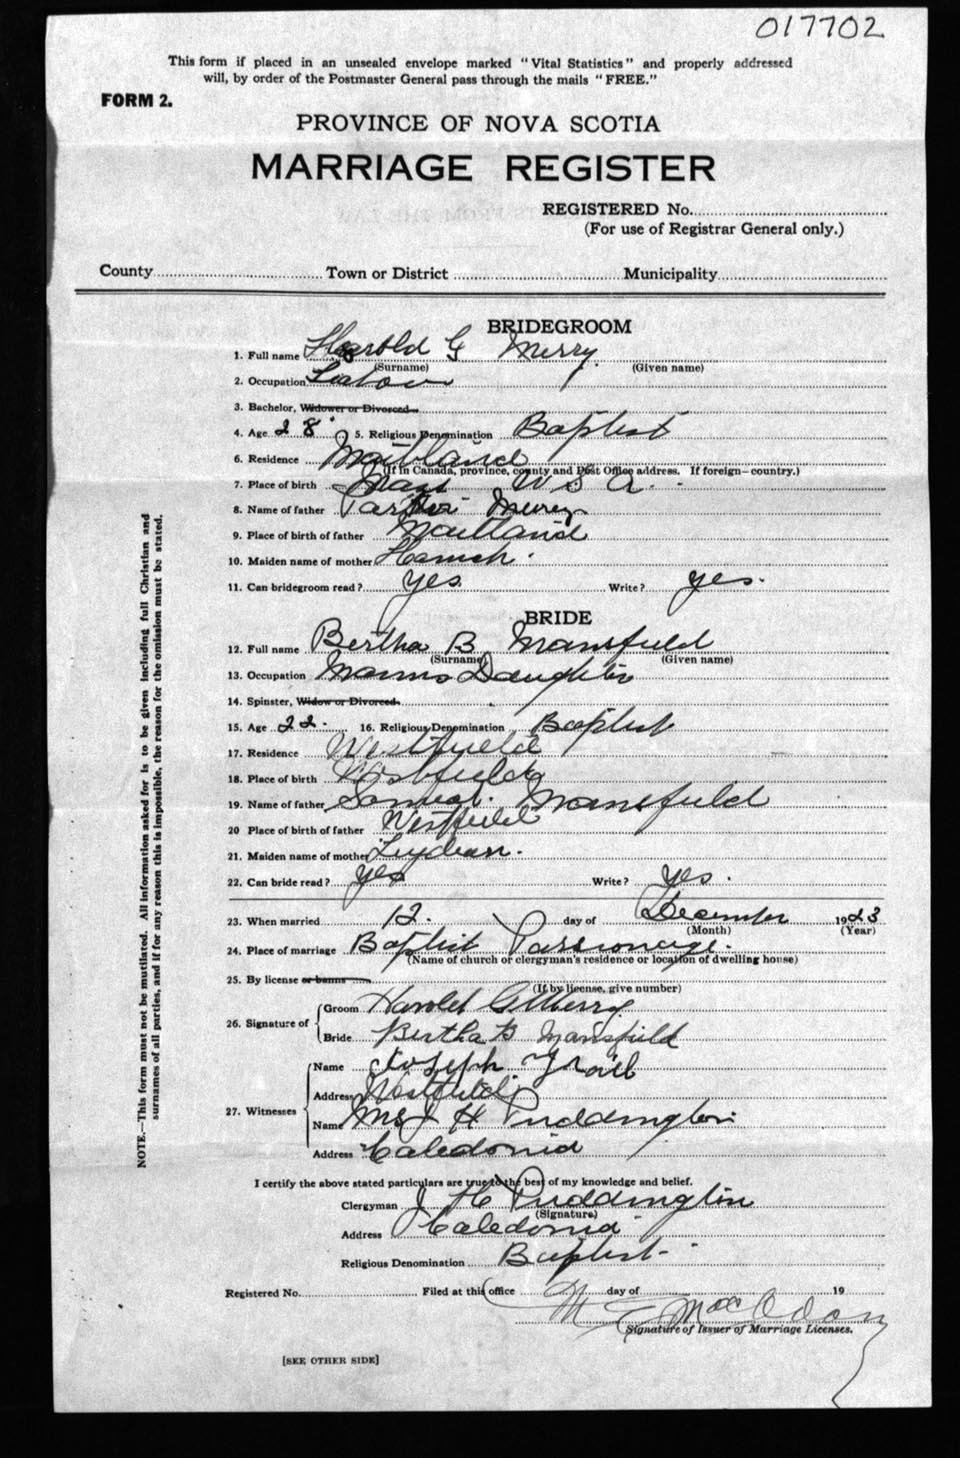 017702
This form if placed in an unsealed envelope marked "Vital Statistics" and properly addressed
will, by order of the Postmaster General pass through the mails "FREE."
FORM 2.
PROVINCE OF NOVA SCOTIA
MARRIAGE REGISTER
REGISTERED No.
(For use of Registrar General only.)
County Town or District Municipality
BRIDEGROOM
1. Full name Harold G Merry
(Surname) (Given name)
2. Occupation
3. Bachelor, Widower or Divorced
4. Age 28 5. Religious Denomination Baptist
6. Residence Maitland
(If in Canada, province, county and Post Office address. If foreign—country.)
7. Place of birth Mass U S A.
8. Name of father Merry
9. Place of birth of father Maitland
10. Maiden name of mother
11. Can bridegroom read? yes Write? yes.
BRIDE
12. Full name Bertha B Mansfield
(Surname) (Given name)
13. Occupation Daughter
14. Spinster, Widow or Divorced
15. Age 22. 16. Religious Denomination Baptist
17. Residence Westfield
18. Place of birth Westfield
19. Name of father Samuel. Mansfield
20 Place of birth of father Westfield
21. Maiden name of mother
22. Can bride read? yes Write? yes.
23. When married 12. day of December 1923
(Month) (Year)
24. Place of marriage Baptist Parsonage.
(Name of church or clergyman's residence or location of dwelling house)
25. By license or banns
(If by license, give number)
26. Signature of Groom Harold G Merry
Bride Bertha B Mansfield
27. Witnesses Name Joseph
Address Westfield
Name Mrs J H Puddington
Address Caledonia
I certify the above stated particulars are true to the best of my knowledge and belief.
Clergyman J H Puddington
(Signature)
Address Caledonia
Religious Denomination Baptist
Registered No. Filed at this office day of 19
Signature of Issuer of Marriage Licenses.
[SEE OTHER SIDE]
NOTE.—This form must not be mutilated. All information asked for is to be given including full Christian and
surnames of all parties, and if for any reason this is impossible, the reason for the omission must be stated.